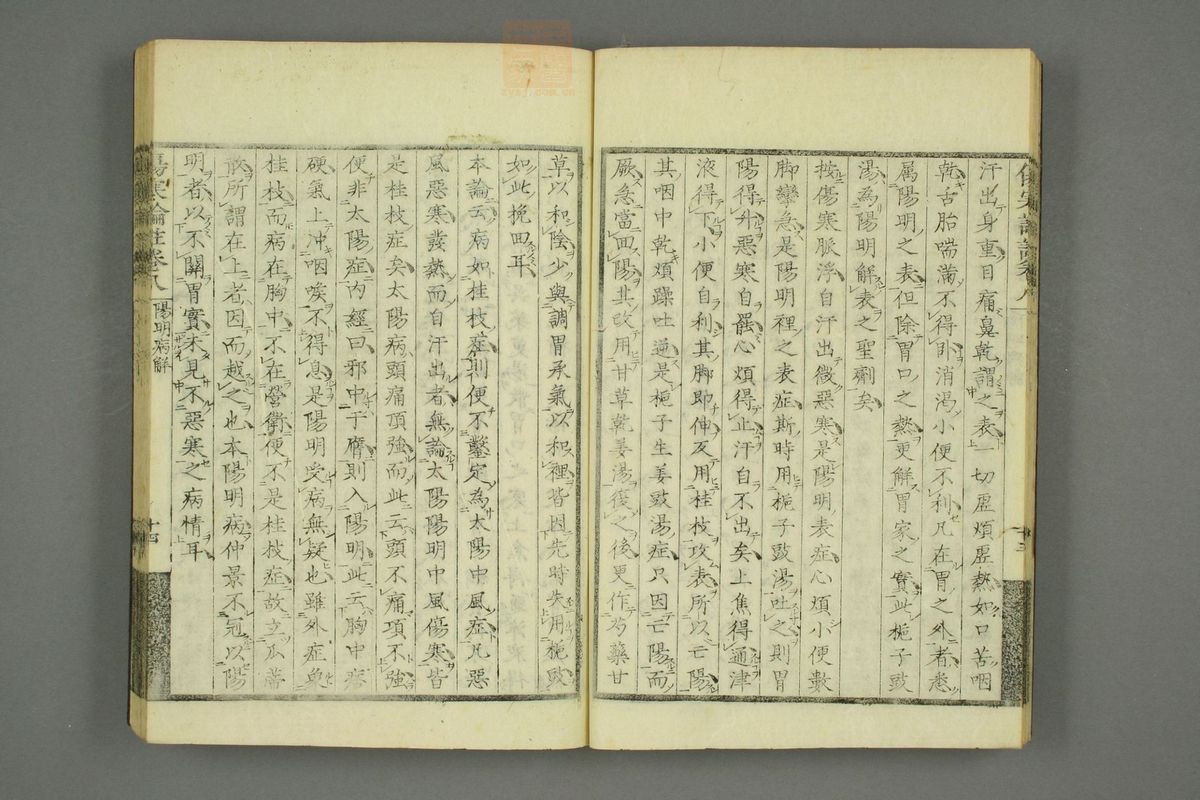 汗出身重目痛鼻乾謂之表一切虛煩虛熱如口苦咽
乾舌胎喘滿不得臥消渴小便不利凡在胃之外者悉
属陽明之表但除胃口之熱更解胃家之實此梔子豉
湯為陽明解表之聖劑矣
按傷寒脈浮自汗出微惡寒是陽明表症心煩小便數
脚攣急是陽明裡之表症斯時用梔子豉湯吐之則胃
陽得升惡寒自罷心煩得止汗自不出矣上焦得通津
液得下小便自利其脚即伸反用桂枝攻表所以亡陽
其咽中乾煩躁吐逆是梔子生姜豉湯症只因亡陽而
厥急當回陽其改用甘草乾姜湯復之後更作芍藥甘
草以和陰少與調胃承氣以和裡皆因先時失用梔豉
如此挽回耳
本論云病如桂枝症則便不鑿定為太陽中風症凡惡
風惡寒發熱而自汗出者無論太陽陽明中風傷寒皆
是桂枝症矣太陽病頭痛項強而此云頭不痛項不強
便非太陽症內經曰邪中于膺則入陽明此云胸中痞
硬氣上冲咽喉不得息是陽明受病無疑也雖外症象
桂枝而病在胸中不在營衛便不是桂枝症故立瓜蒂
散所謂在上者因而越之也本陽明病仲景不冠以陽
明者以不關胃實未見不惡寒之病情耳
傷寒論註卷八 陽明病解 十四